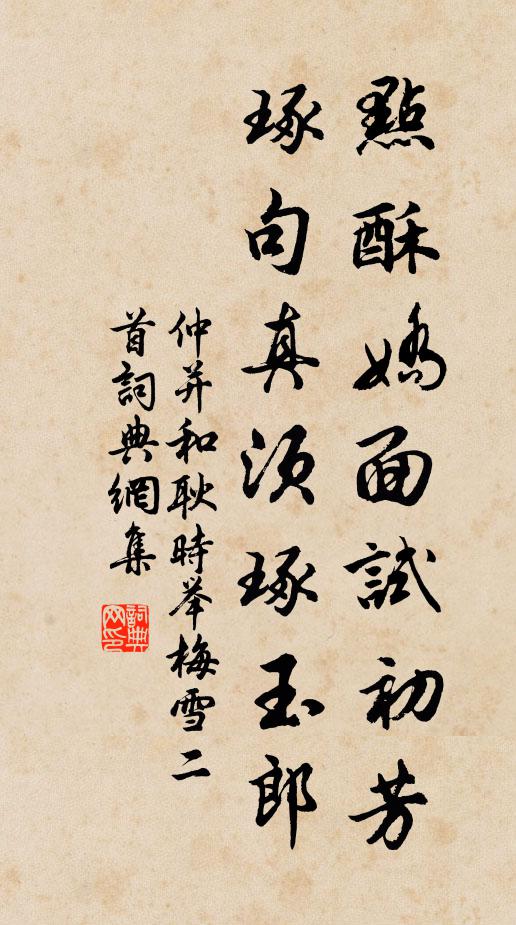 點酥嬌面試初芳
琢句真須琢玉郎
仲并和耿時举梅雪二
首詞典網集
詞典网印